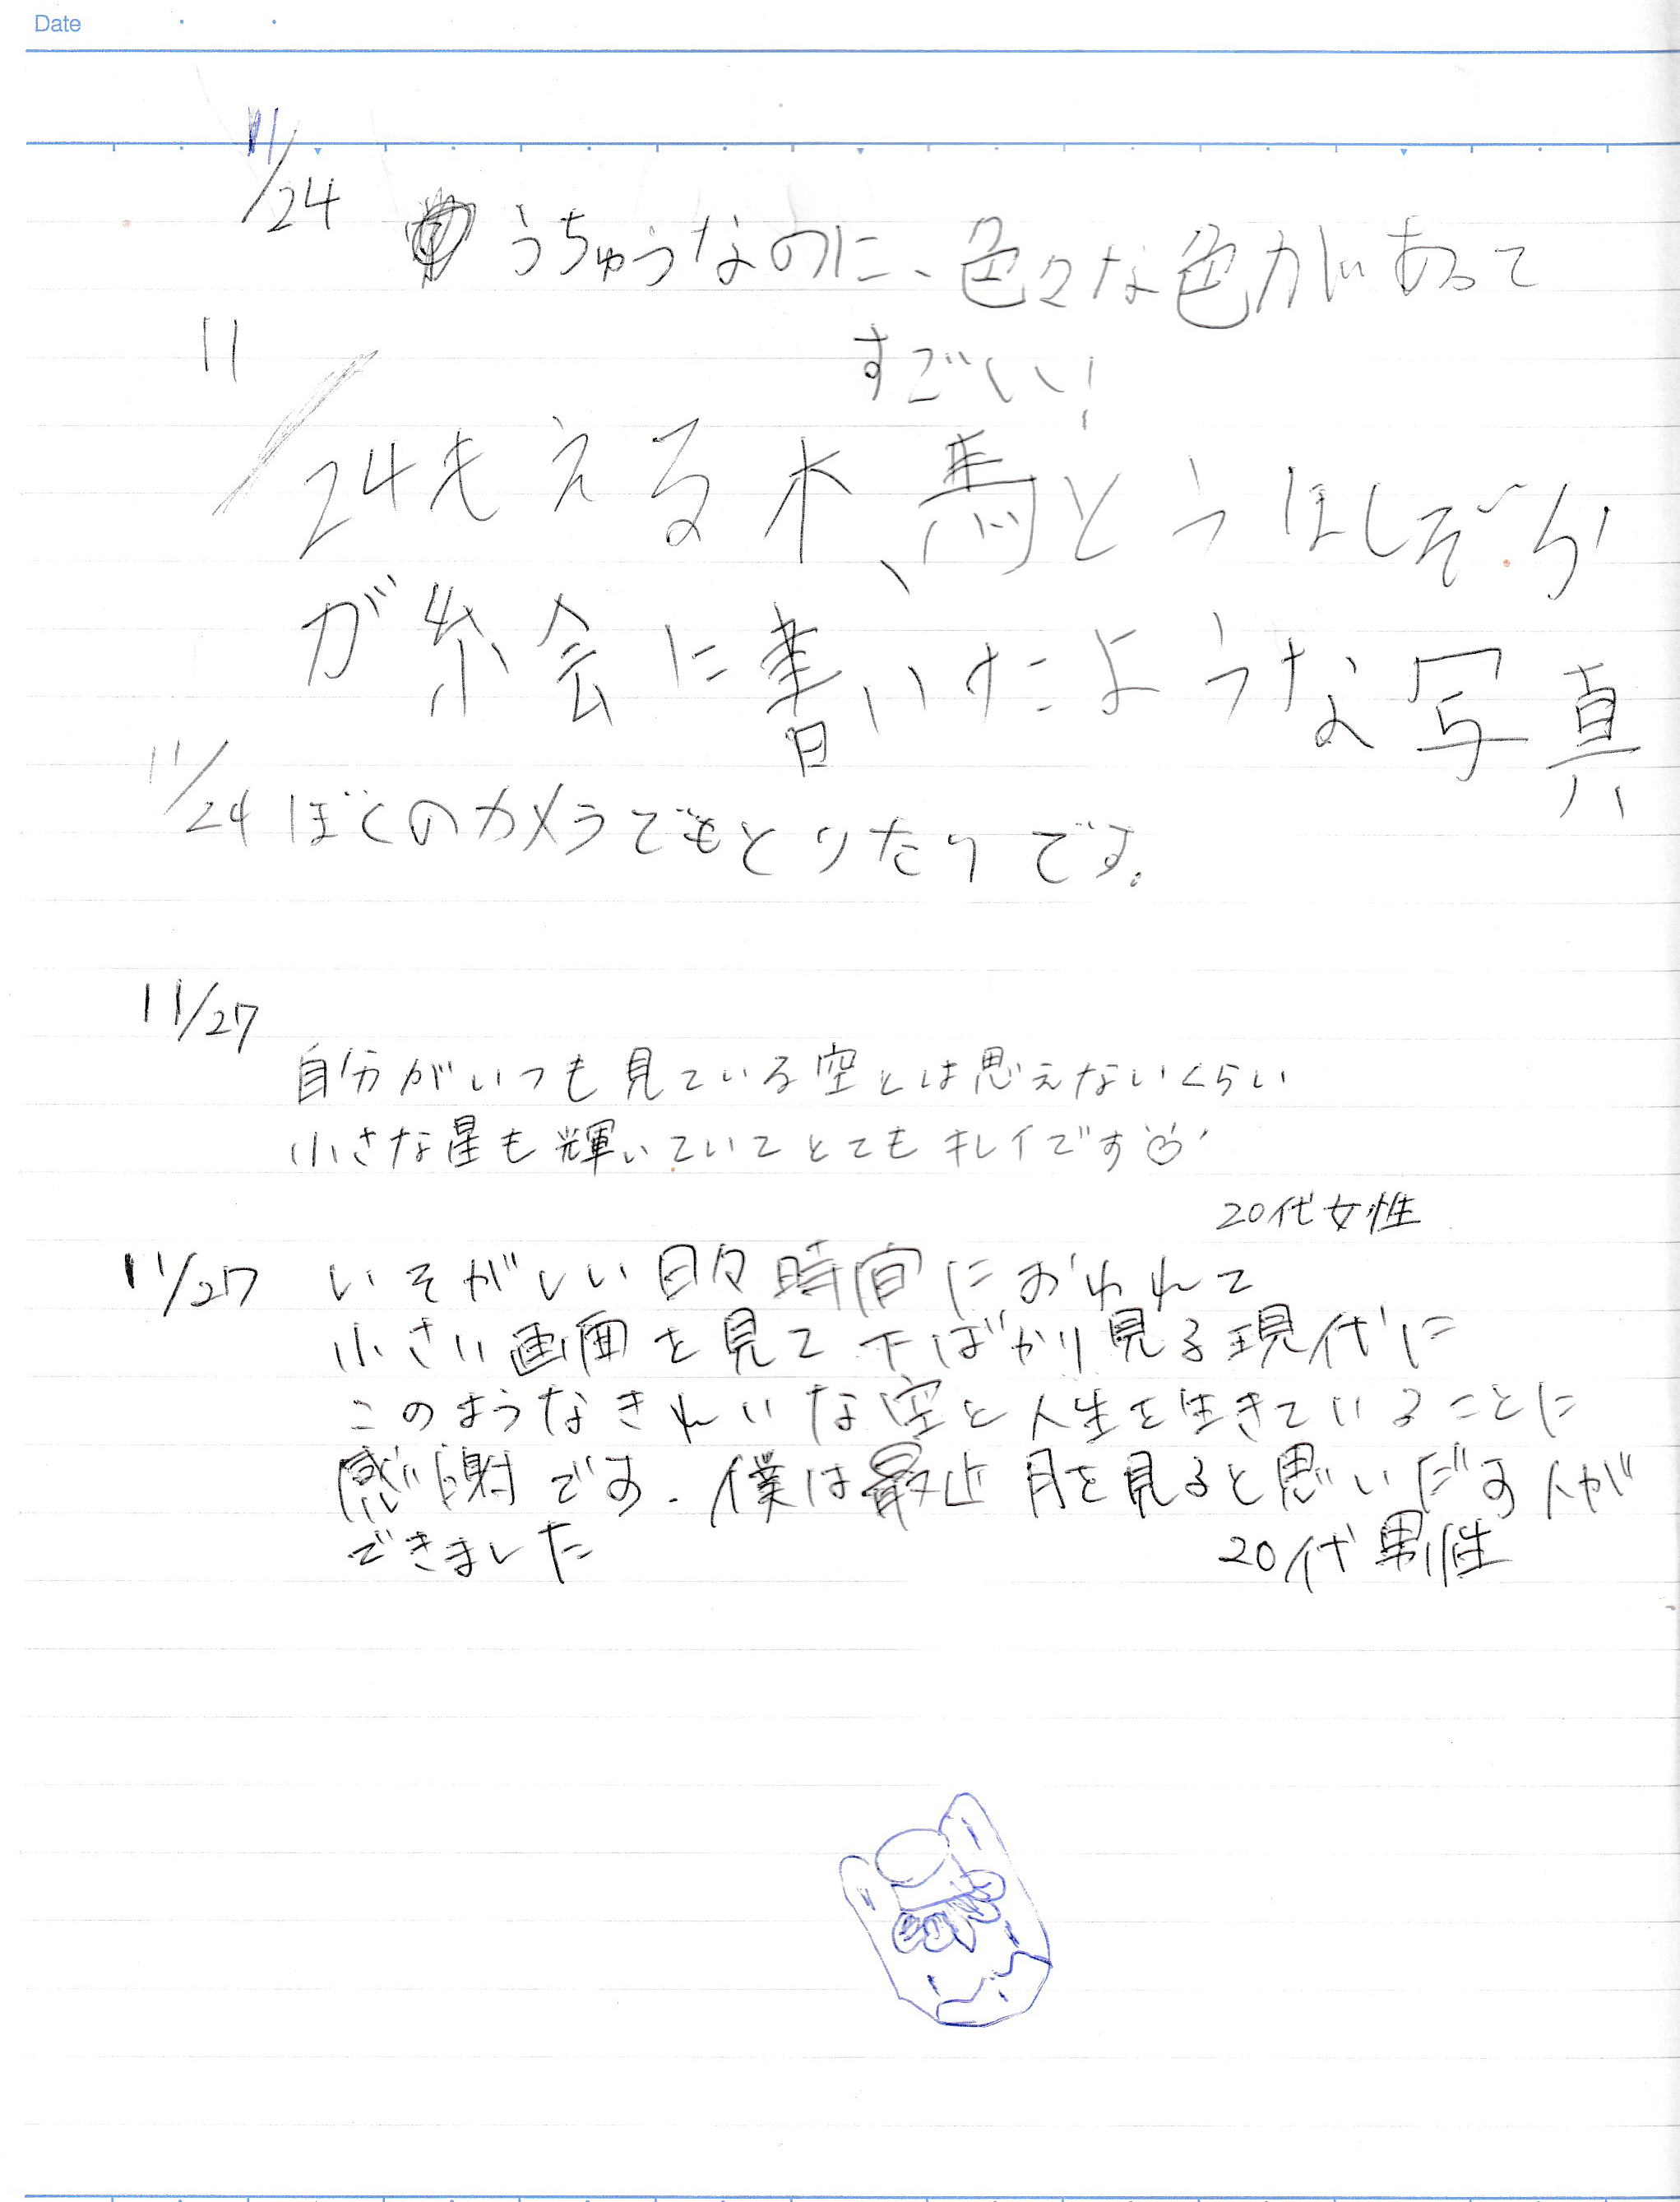 Date
11/24 うちゅうなのに、色々な色があって
すごい!
11/24 もえる木、馬とうほしぞら
が絵に書いたような写真
11/24 ぼくのカメラでもとりたいです。
11/27
自分がいつも見ている空とは思えないくらい
小さな星も輝いていてとてもキレイです
20代女性
11/27 いそがしい日々時間におわれて
小さい画面を見て下ばかり見る現代に
このようなきれいな空と人生を生きていることに
感謝です。僕は最近月を見ると思いだす人が
できました
20代男性